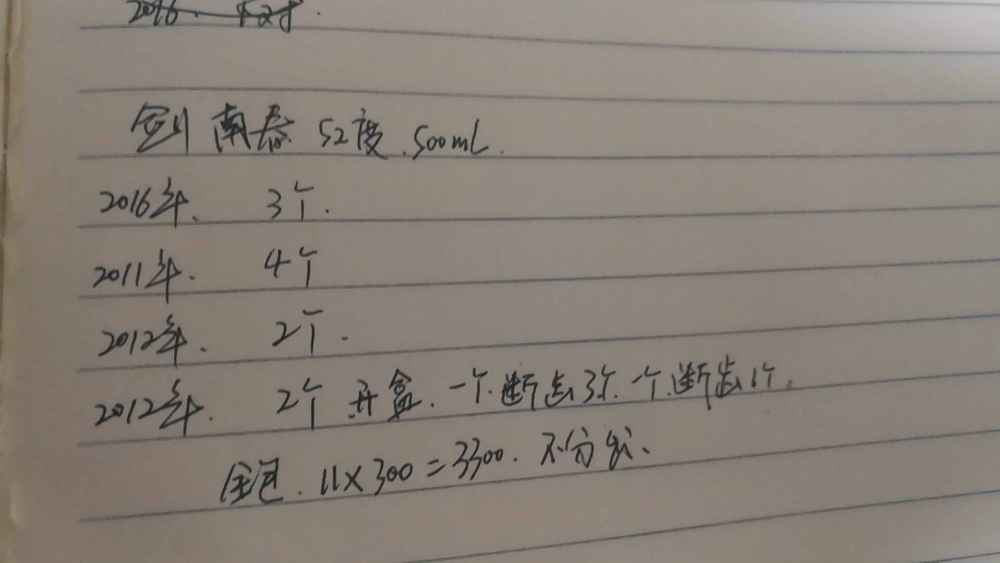 2016.
剑南春 52度.500mL.
2016年、 3个.
2011年. 4个
2012年. 2个.
2012年. 2个 开盒.一个.断齿3个.一个断齿1个.
全包.11×300=3300.不分出、